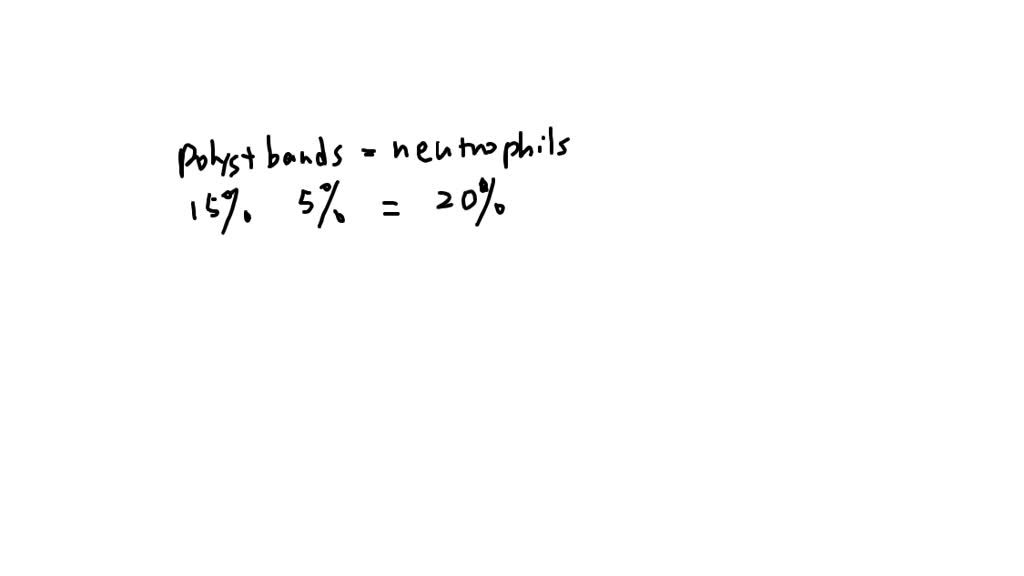 polys+ bands = neutrophils
15% 5% = 20%